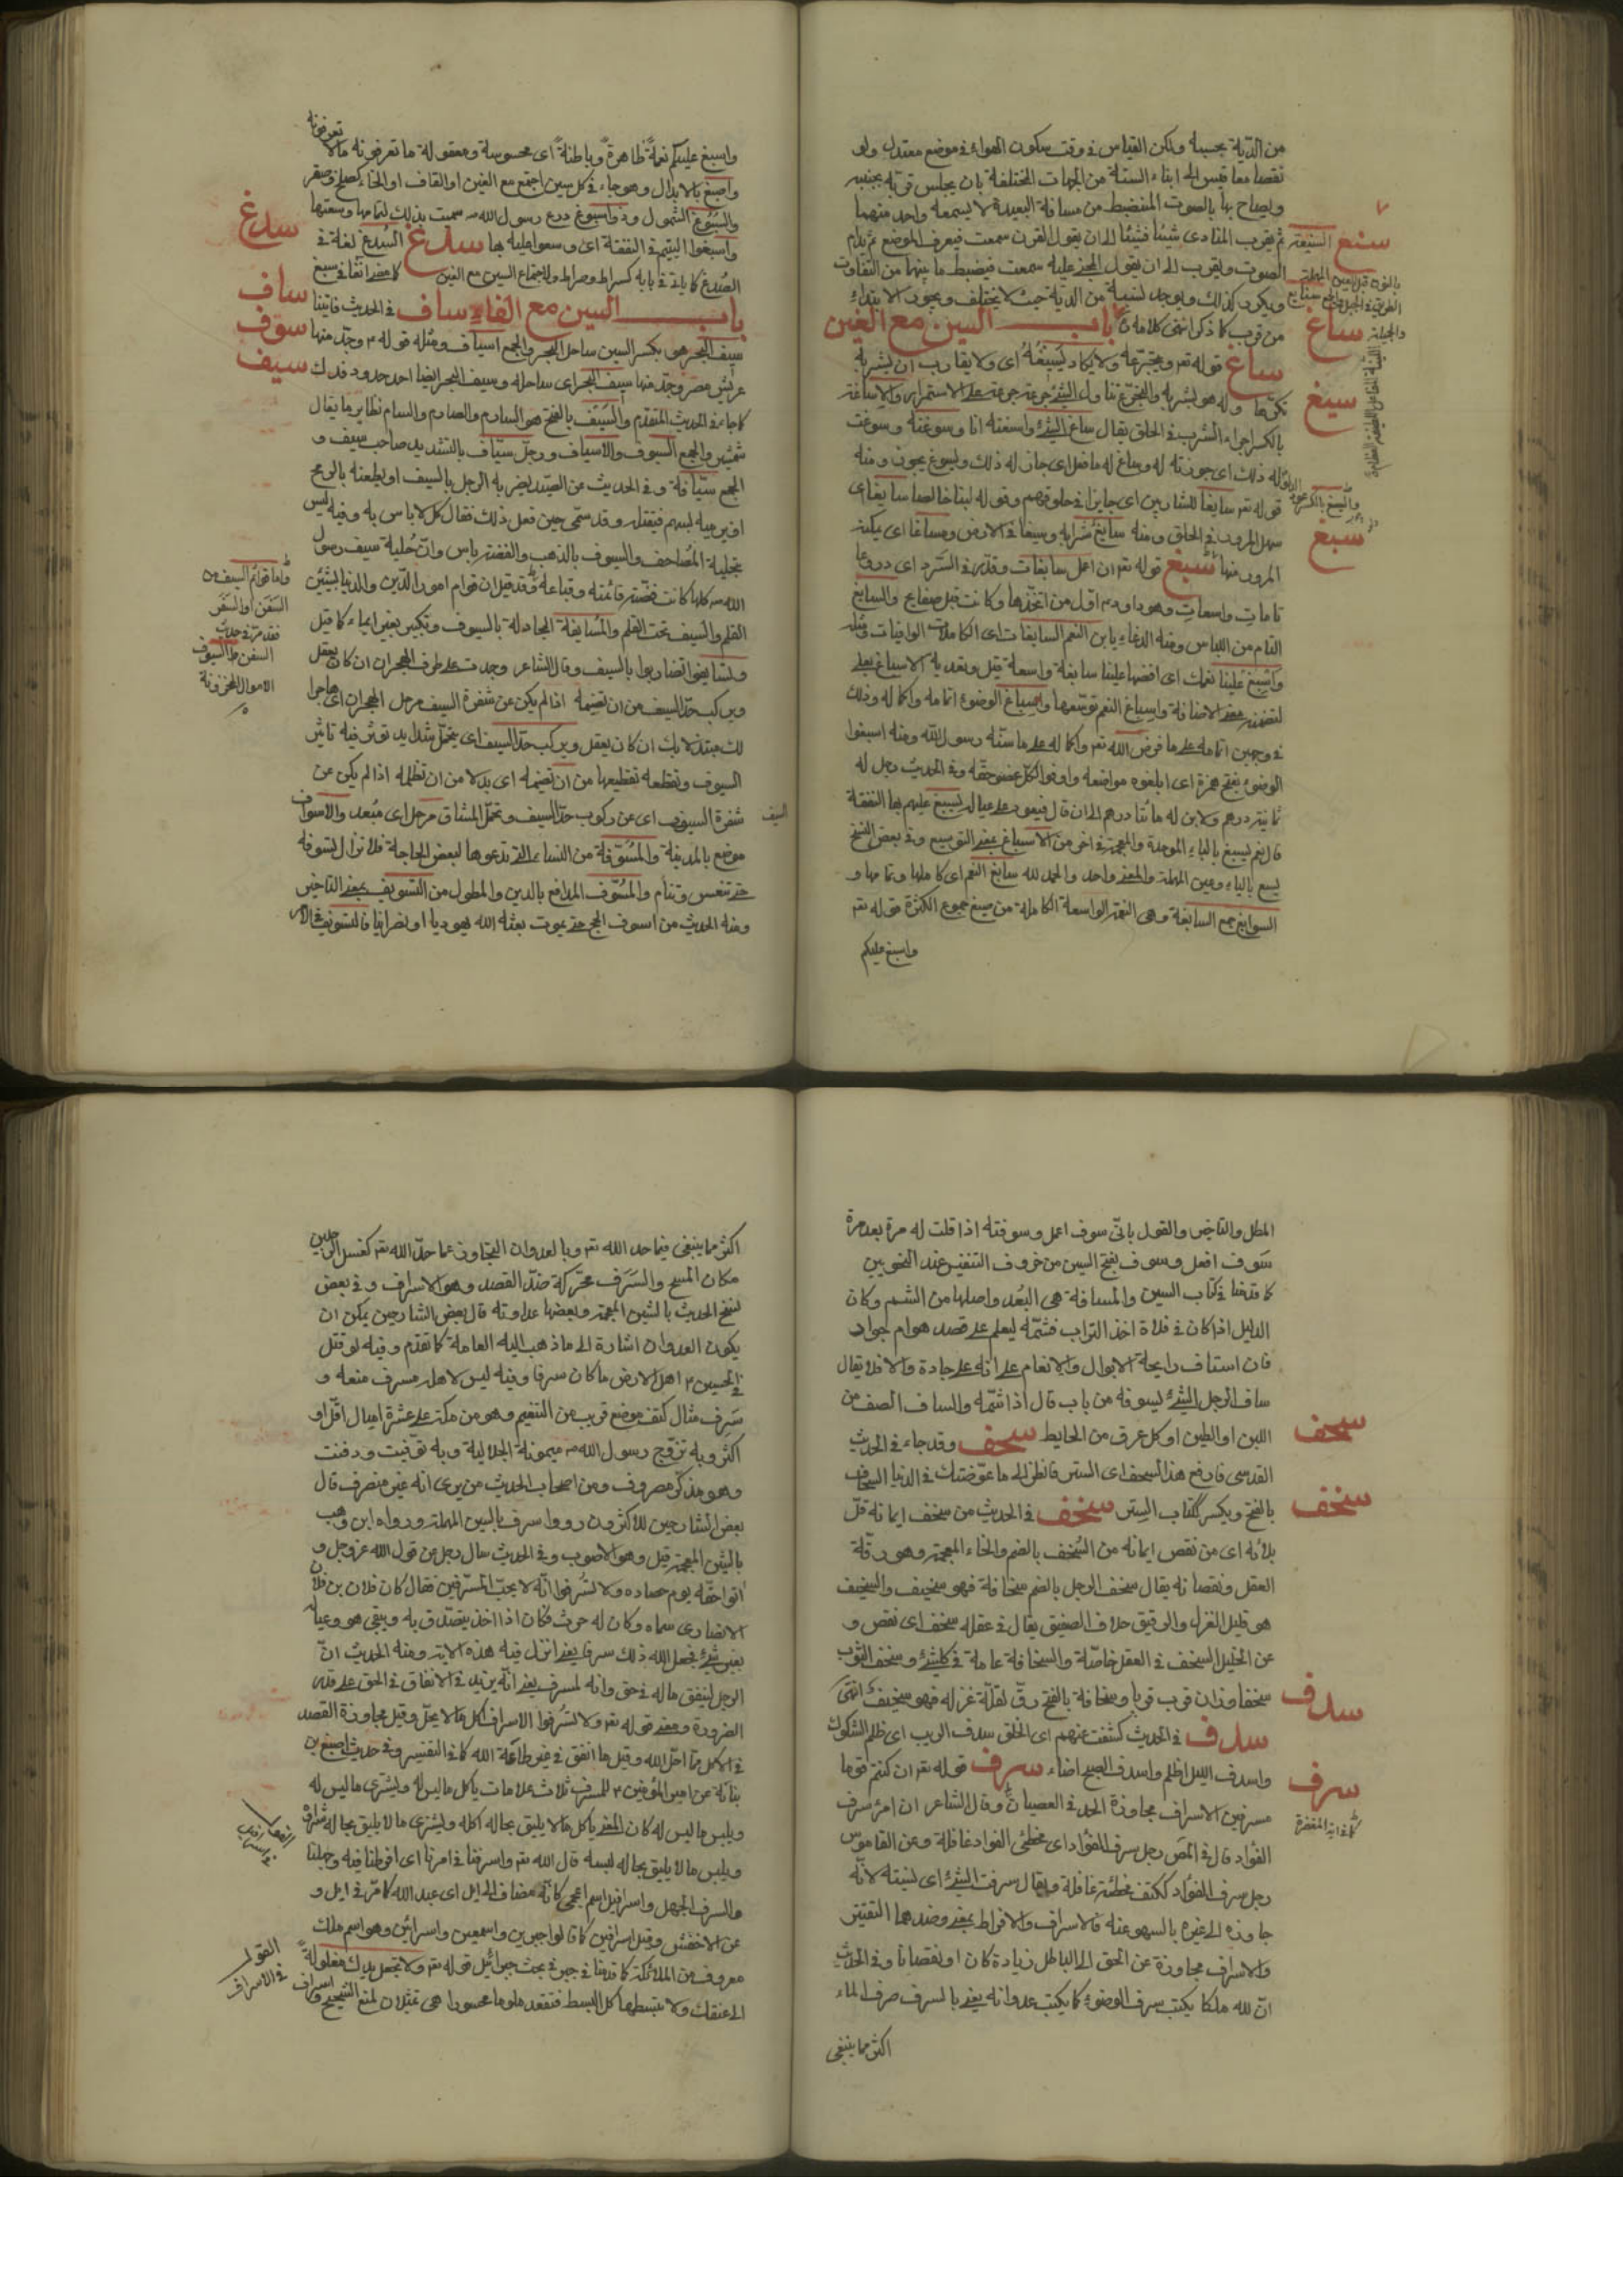 من الدّية بحسبه ولكن القياس فى وقت سكون الهواء فى موضع معتدل ولو
نقصا معا قيس الى ابناء السنة من الجهات المختلفة بان يجلس قرية بجنبه
ويصاح بها بالصوت المنضبط من مسافة البعيدة لا يسمعه واحد منهما
ثم يقرب المنادى شيئا فشيئا الى ان يقول القرن سمعت فيعرف الموضع ثم يدام
الصوت ويقرب الى ان يقول المجنى عليه سمعت فيضبط ما بينهما من التفاوت
ويكون كذلك ويوجد لنسبة من الدّية حيث لا يختلف ويجوز الابتداء
من قرب كما ذكر انتهى كلامه باب السين مع الغين
ساغ قوله تعم يتجرّعه ولا يكاد يسيغُهُ اى ولا يقارب ان يشربه
تكرّها وله هو يشربه والتجرّع تناول الشئ جرعة جرعة على الاستمرار والاساغة
بالكسر اجراء الشرب فى الحلق يقال ساغ الشئ واسغته انا وسوغته وسوغت
له ذلك اى جوزته له وساغ له ما فعل اى جاز له ذلك ويسوغ يجوز ومنه
قوله تعم سايغا للشاربين اى جايزا فى حلوقهم وقوله لبنا خالصا سايغا اى
سهل المرور فى الحلق ومنه سايغ شرابه وسيغا فى الارض ومساغا اى يمكنه
المرور منها سبغ قوله تعم ان اعمل سابغات وقدّر فى السّرد اى دروعا
تامات واسعات وهو داود ع اوّل من اتخذها وكانت قبل صفايح والسابغ
التام من اللباس ومنه الدعاء يا بن النعم السابغات اى الكاملات الوافيات ومثله
واسبغ علينا نعمك اى افضها علينا سابغة واسعة قيل وتعدية الاسباغ بعلى
لتضمنه معنى الاضافة واسباغ النعم توسّعها واسباغ الوضوء اتمامه واكماله وذلك
فى وجهين اتمامه على ما فرض الله تعم واكماله على ما سنّه رسول الله ومنه اسبغوا
الوضوء بفتح همزة اى ابلغوه مواضعه واوفوا كل عضو حقّه وفى الحديث رجل له
ثمانية درهم ولابن له مائتا درهم الى ان قال فيعود على عياله يسبغ عليهم بها النفقة
قال نعم يسبغ بالباء الموحدة والمعجمة فى اخر من الاسباغ بمعنى التوسيع وفى بعض النسخ
يسع بالياء وعين المهملة والمعنى واحد والحمد لله سابغ النعم اى كاملها وتمامها و
السوابغ جمع السابغة وهى النعمة الواسعة الكاملة من صيغ جموع الكثرة قوله تعم
واسبغ عليكم
سنع
ساغ
سيغ
سبغ
واسبغ عليكم نعمةً ظاهرةً وباطنةً اى محسوسة ومعقولة ما تعرفونه ومالا
تعرفونه
واصبغ بالابدال وهو جاء فى كل سين اجتمع مع الغين او القاف او الخاء كصلخ وصقر
والسُبُوغ الشمول وذو اسبوغ درع رسول الله ص سميت بذلك لتمامها وسعتها
واسبغوا اليتيم فى النفقة اى وسعوا عليه بها سدغ السُدغ لغة فى
الصُدغ كما ياتى فى بابه كسراط وصراط ولاجتماع السين مع الغين كما مضى انفا فى سبغ
باب السين مع الفاء ساف فى الحديث فاتينا
سيف البحر هى بكسر السين ساحل البحر والجمع اسياف ومثله قوله ع وحدّ منها
عريش مصر وحدّ منها سيف البحر اى ساحله وسيف البحر ايضا احد حدود فدك
كما جاء فى الحديث المتقدم والسيف بالفتح هو السادم والصادم والسام نظاير ما يقال
شمشير والجمع السيوف والاسياف ورجل سيّاف بالتشديد صاحب سيف و
الجمع سيّافة وفى الحديث عن الصيد يضربه الرجل بالسيف او يطعنه بالرمح
او يرميه بسهم فيقتله وقد سمّى حين فعل ذلك فقال كل لا باس به وفيه ليس
بتحلية المصاحف والسيوف بالذهب والفضة باس وانّ حُلية سيف رسول
الله ص كلها كانت فضّة قائمته وقباعه وقد قيل ان قوام امور الدّين والدنيا بشيئين
القلم والسيف تحت القلم والمُسايفة المجادلة بالسيوف
وتسايفوا تضاربوا بالسيف وقال الشاعر وجدت على طرف الهجران ان كان يعقل
ويركب حدّ السيف من ان تضيمه اذا لم يكن عن شفرة السيف مزحل الهجران اى هاجرا
لك مبتذلا بك ان كان يعقل ويركب حدّ السيف اى يتحمّل شدايد توثر فيه تاثير
السيوف وتقطعه تقطيعها من ان تضيمه اى بدلا من ان تظلمه اذا لم يكن عن
شفرة السيوف اى عن ركوب حدّ السيف وتحمل المشاق مزحل اى مُبعد والاسواف
موضع بالمدينة والمُسوّفة من النساء التى يدعوها لبعض الحاجة فلا تزال تسوفه
حتى تنعس وتنام والمُسوّف المدافع بالدين والمطول من التسويف بمعنى التاخير
ومنه الحديث من اسوف الحج حتى يموت بعثه الله يهوديا او نصرانيا فالتسويف فى الامر
سدغ
ساف
سوف
سيف
واما قوائم السيف من
السَفَن او السَفَر
فقد مرّ فى حديث
السفن ط السيوف
الاموال المخزونة
السيف
المطل والتاخير والقول بانّى سوف اعمل وسوفته اذا قلت له مرة بعد مرة
سَوف افعل وسوف بفتح السين من حروف التنفيس عند النحويين
كما قدمنا فى كتاب السين والمسافة هى البُعد واصلها من الشم وكان
الدليل اذا كان فى فلاة اخذ التراب فشمّه ليعلم على قصد هو ام جواد
فان استاف رايحة الابوال والانعام علم انه على جادة والا فلا يقال
ساف الرجل الشئ يسوفه من باب قال اذا شمّه والساف الصف من
اللبن او الطين او كل عرق من الحايط سجف وقد جاء فى الحديث
القدسى فارفع هذا السجف اى الستر فانظر الى ما عوّضتك فى الدنيا السجاف
بالفتح ويكسر ككتاب السِتر سخف فى الحديث من سخف ايمانه قلّ
بلائه اى من نقص ايمانه من السُخف بالضم والخاء المعجمة وهو رقّة
العقل ونقصانه يقال سخف الرجل بالضم سخافة فهو سخيف والسخيف
هو قليل الغزل والرقيق خلاف الصفيق يقال فى عقله سخف اى نقص و
عن الخليل السخف فى العقل خاصّة والسخافة عامة فى كل شئ وسخف الثوب
سخفا وزان قرب قربا وسخافة بالفتح رقّ لقلّة غزله فهو سخيف انتهى
سدف فى الحديث كشفت عنهم اى الخلق سدف الريب اى ظلم الشكوك
واسدف الليل اظلم واسدف الصبح اضاء سرف قوله تعم ان كنتم قوما
مسرفين الاسراف مجاوزة الحد فى العصيان وقال الشاعر ان امرء سرف
الفؤاد قال فى المص رجل سرف الفؤاد اى مخطئ الفواد غافلة وعن القاموس
رجل سرف الفؤاد ككتف مخطئه غافله ويقال سرفت الشئ اى نسيته لانّه
جاوزه الى غيره بالسهو عنه فالاسراف والافراط بمعنى وضدهما التقتير
والاسراف مجاوزة عن الحق الى الباطل زيادة كان او نقصانا وفى الحديث
انّ لله ملكا يكتب سرف الوضوء كما يكتب عدوانه يعنى بالسرف صرف الماء
اكثر مما ينبغى
سجف
سخف
سدف
سرف
اكثر مما ينبغى فيما حد الله تعم وبالعدوان التجاوز عما حدّ الله تعم كغسل الرجلين
مكان المسح والسَرَف محرّكة ضدّ القصد وهو الاسراف وفى بعض
نسخ الحديث بالشين المعجمة وبعضها عداوته قال بعض الشارحين يمكن ان
يكون العدوان اشارة الى ما ذهب اليه العامة كما تقدم وفيه لو قتل
فى الحسين ع اهل الارض ما كان سرفا وفيه ليس لاهل مسرف منعة و
سَرِف مثال كتف موضع قريب من التنعيم وهو من مكة على عشرة اميال اقلّ او
اكثر وبه تزوّج رسول الله ص ميمونة الهلالية وبه توفيت ودفنت
وهو مذكّر مصروف ومن اصحاب الحديث من يرى انه غير منصرف قال
بعض الشارحين الاكثرون رووا سرف بالسين المهملة ورواه ابن وهب
بالشين المعجمة قيل وهو الاصوب وفى الحديث سال رجل عن قول الله عز وجل و
اتوا حقّه يوم حصاده ولا تسُرفوا انّه لا يحبّ المسرّفين فقال كان فلان بن فلان
الانصارى سماه وكان له حرث فكان اذا اخذ يتصدّق به ويبقى هو وعياله
بغير شئ فجعل الله ذلك سرفا يعنى انزل فيه هذه الاية ومنه الحديث انّ
الرجل لينفق ماله فى حق وانه لمسرف يعنى انّه يزيد فى الانفاق فى الحق على قدر
الضرورة ومعنى قوله تعم ولا تُسرفوا الاسراف كل مالا يحلّ وقيل مجاوزة القصد
فى الاكل ممّا احلّ الله وقيل ما انفق فى غير طاعة الله كما فى التفسير وفى حديث اصبغ بن
بناتة عن امير المؤمنين ع للمسرف ثلاث علامات ياكل ما ليس له ويشترى ما ليس له
ويلبس ما ليس له كان المعنى ياكل مالا يليق بحاله اكله ويشترى مالا يليق بحاله شراؤه
ويلبس مالا يليق بحاله لبسه قال الله تعم واسرفنا فى امرنا اى افرطنا فيه وجهلنا
والسرف الجهل واسرافيل اسم اعجمى كانّه مضاف الى ايل اى عبد الله كما مرّ فى ايل و
عن الاخفش وقيل اسرافين كما قالوا جبرين واسمعين واسرائين وهو اسم ملك
معروف من الملائكة كما قدمنا فى جبر فى بحث جبرائيل قوله تعم ولا تجعل يدك مغلولةً
الى عنقك ولا تبسطها كل البسط فتقعد ملوما محسورا هى تمثيلان لمنع الشحيح واسراف
القول
فى الاسراف